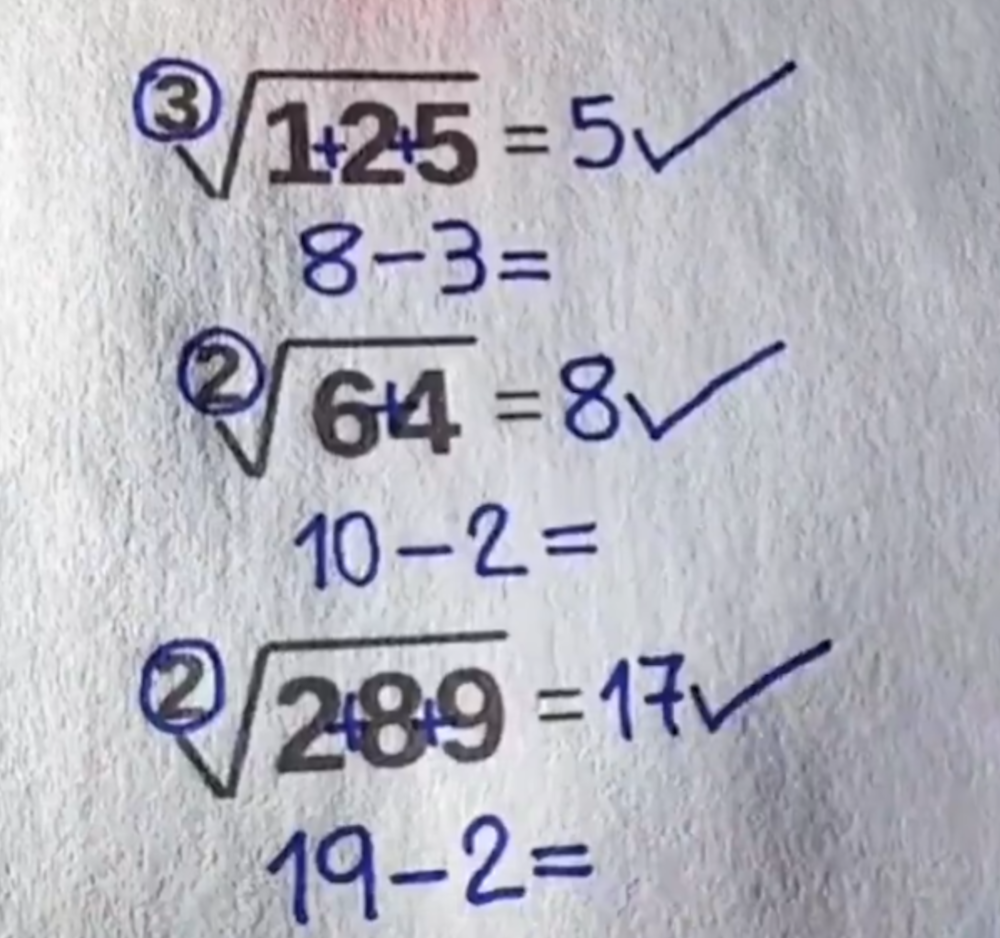 ∛1+2+5 = 5✓
8-3=
²√6+4 = 8✓
10-2=
²√2+8+9 = 17✓
19-2=